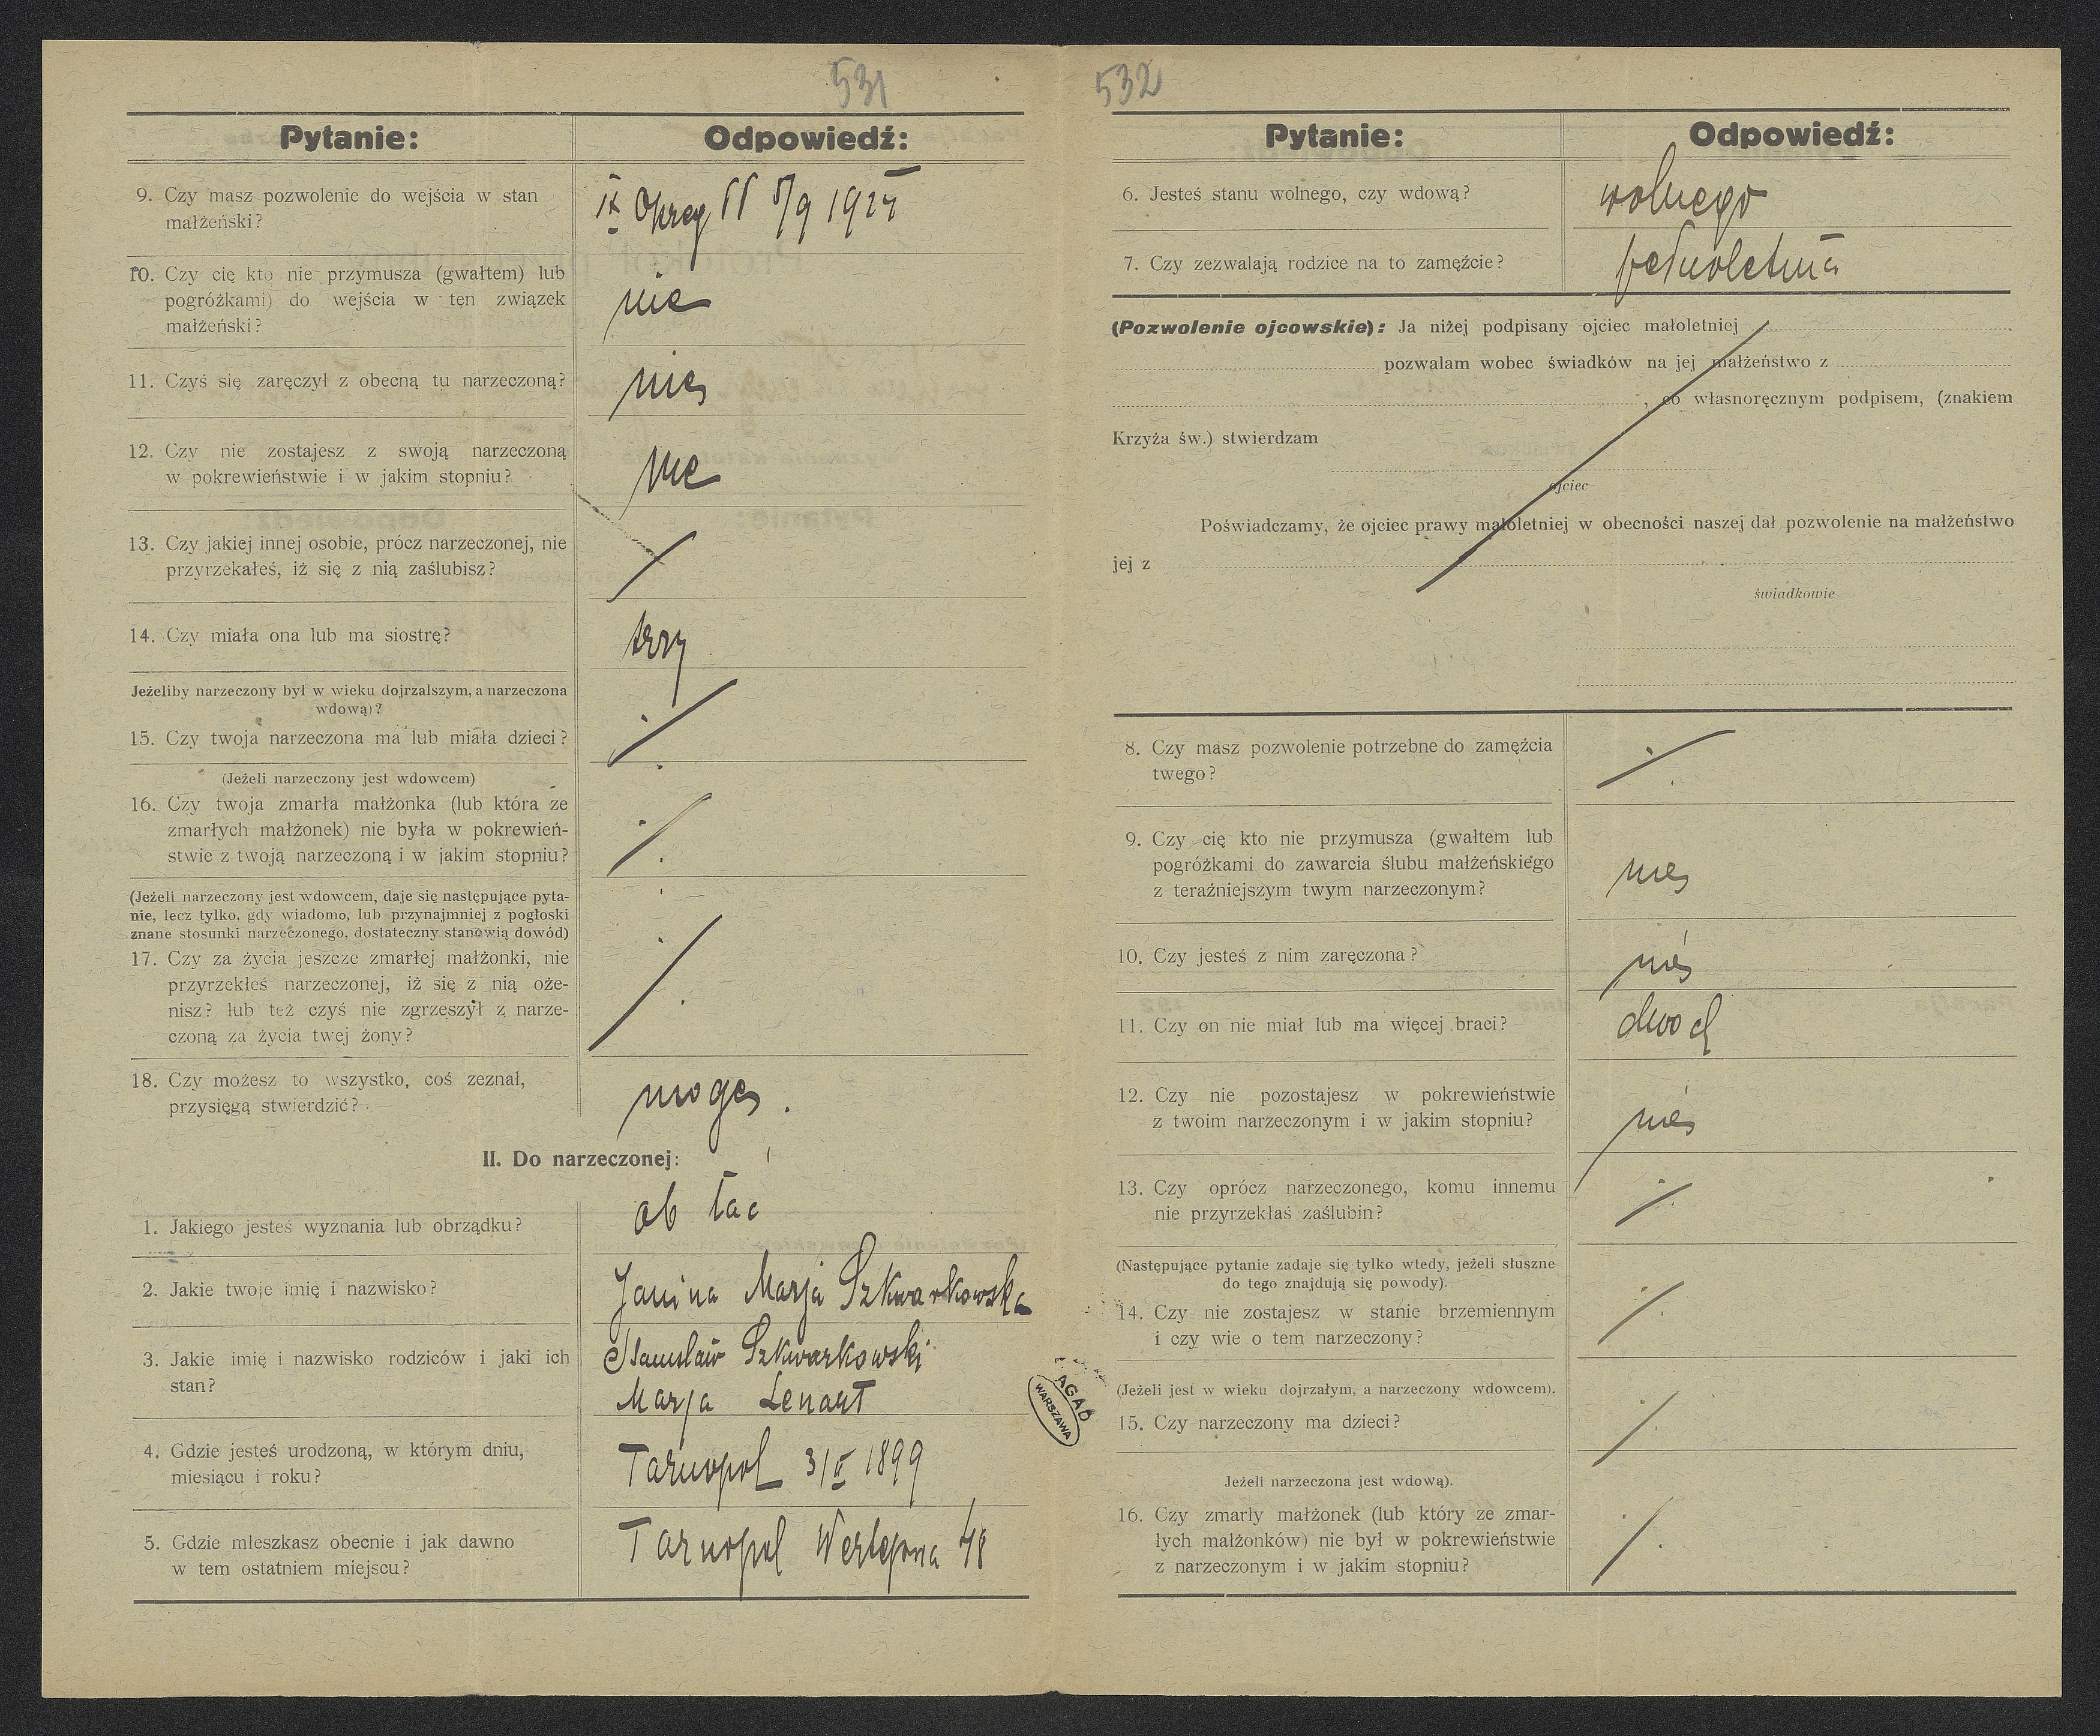 531
Pytanie:
Odpowiedź:
9. Czy masz pozwolenie do wejścia w stan
małżeński?
IX Okręg 5/9 1925
10. Czy cię kto nie przymusza (gwałtem) lub
pogróżkami) do wejścia w ten związek
małżeński?
nie
11. Czyś się zaręczył z obecną tu narzeczoną?
nie
12. Czy nie zostajesz z swoją narzeczoną
w pokrewieństwie i w jakim stopniu?
nie
13. Czy jakiej innej osobie, prócz narzeczonej, nie
przyrzekałeś, iż się z nią zaślubisz?
14. Czy miała ona lub ma siostrę?
trzy
Jeżeliby narzeczony był w wieku dojrzalszym, a narzeczona
wdową)?
15. Czy twoja narzeczona ma lub miała dzieci?
(Jeżeli narzeczony jest wdowcem)
16. Czy twoja zmarła małżonka (lub która ze
zmarłych małżonek) nie była w pokrewień-
stwie z twoją narzeczoną i w jakim stopniu?
(Jeżeli narzeczony jest wdowcem, daje się następujące pyta-
nie, lecz tylko, gdy wiadomo, lub przynajmniej z pogłoski
znane stosunki narzeczonego, dostateczny stanowią dowód)
17. Czy za życia jeszcze zmarłej małżonki, nie
przyrzekłeś narzeczonej, iż się z nią oże-
nisz? lub też czyś nie zgrzeszył z narze-
czoną za życia twej żony?
18. Czy możesz to wszystko, coś zeznał,
przysięgą stwierdzić?
mogę.
II. Do narzeczonej:
1. Jakiego jesteś wyznania lub obrządku?
ob łac
2. Jakie twoje imię i nazwisko?
Janina Marja Szkwarkowska
3. Jakie imię i nazwisko rodziców i jaki ich
stan?
Stanisław Szkwarkowski
Marja Lenart
4. Gdzie jesteś urodzoną, w którym dniu,
miesiącu i roku?
Tarnopol 1899
5. Gdzie mieszkasz obecnie i jak dawno
w tem ostatniem miejscu?
Tarnopol
532
Pytanie:
Odpowiedź:
6. Jesteś stanu wolnego, czy wdową?
wolnego
7. Czy zezwalają rodzice na to zamęźcie?
pełnoletnia
(Pozwolenie ojcowskie): Ja niżej podpisany ojciec małoletniej
pozwalam wobec świadków na jej małżeństwo z
, co własnoręcznym podpisem, (znakiem
Krzyża św.) stwierdzam
ojciec
Poświadczamy, że ojciec prawy małoletniej w obecności naszej dał pozwolenie na małżeństwo
jej z
świadkowie
8. Czy masz pozwolenie potrzebne do zamęźcia
twego?
9. Czy cię kto nie przymusza (gwałtem lub
pogróżkami do zawarcia ślubu małżeńskiego
z teraźniejszym twym narzeczonym?
nie
10. Czy jesteś z nim zaręczona?
nie
11. Czy on nie miał lub ma więcej braci?
dwoch
12. Czy nie pozostajesz w pokrewieństwie
z twoim narzeczonym i w jakim stopniu?
nie
13. Czy oprócz narzeczonego, komu innemu
nie przyrzekłaś zaślubin?
(Następujące pytanie zadaje się tylko wtedy, jeżeli słuszne
do tego znajdują się powody).
14. Czy nie zostajesz w stanie brzemiennym
i czy wie o tem narzeczony?
AGAD
WARSZAWA
(Jeżeli jest w wieku dojrzałym, a narzeczony wdowcem).
15. Czy narzeczony ma dzieci?
Jeżeli narzeczona jest wdową).
16. Czy zmarły małżonek (lub który ze zmar-
łych małżonków) nie był w pokrewieństwie
z narzeczonym i w jakim stopniu?